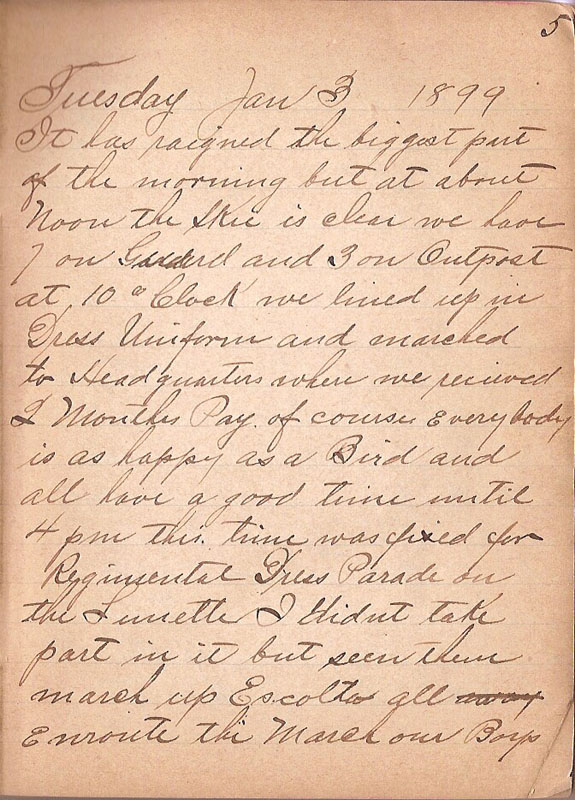 5
Tuesday Jan 3 1899
It has raigned the biggest part
of the morning but at about
Noon the Skie is clear we have
7 on Guard and 3 on Outpost
at 10 o Clock we lined up in
Dress Uniform and marched
to Headquarters where we recieved
2 Months Pay of course Everybody
is as happy as a Bird and
all have a good time until
4 pm this time was fixed for
Regimental Dress Parade on
the Lunetta I didnt take
part in it but seen them
march up Escolta all away
Enroute the March our Boys